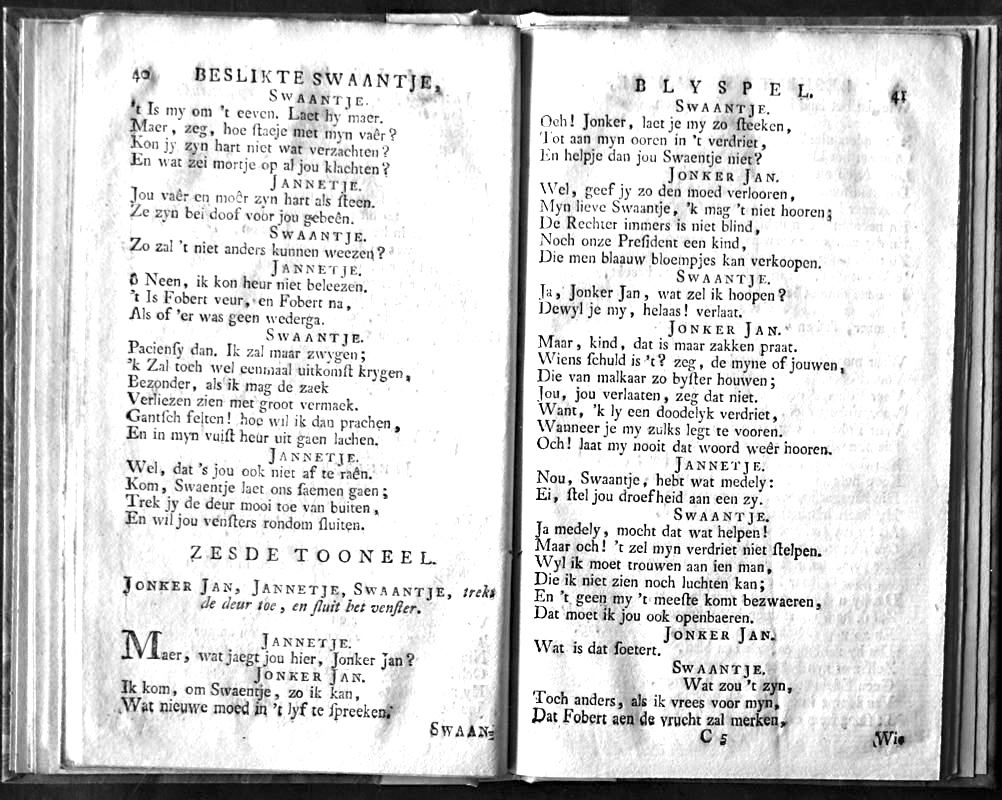 40 BESLIKTE SWAANTJE,
SWAANTJE.
't Is my om 't eeven. Laet hy maer.
Maer, zeg, hoe ſtaeje met myn vaêr?
Kon jy zyn hart niet wat verzachten?
En wat zei mortje op al jou klachten?
JANNETJE.
Jou vaêr en moêr zyn hart als ſteen.
Ze zyn bei doof voor jou gebeên.
SWAANTJE.
Zo zal 't niet anders kunnen weezen?
JANNETJE.
ô Neen, ik kon heur niet beleezen.
't Is Fobert veur, en Fobert na,
Als of 'er was geen wederga.
SWAANTJE.
Pacienſy dan. Ik zal maar zwygen;
'k Zal toch wel eenmaal uitkomſt krygen,
Bezonder, als ik mag de zaek
Verliezen zien met groot vermaek.
Gantſch felten! hoe wil ik dan prachen,
En in myn vuiſt heur uit gaen lachen.
JANNETJE.
Wel, dat 's jou ook niet af te raên.
Kom, Swaentje laet ons ſaemen gaen;
Trek jy de deur mooi toe van buiten,
En wil jou venſters rondom ſluiten.
ZESDE TOONEEL.
JONKER JAN, JANNETJE, SWAANTJE, trekt
de deur toe, en ſluit het venſter.
JANNETJE.
Maer, wat jaegt jou hier, Jonker Jan?
JONKER JAN.
Ik kom, om Swaentje, zo ik kan,
Wat nieuwe moed in 't lyf te ſpreeken.
SWAAN-
BLYSPEL. 41
SWAANTJE.
Och! Jonker, laet je my zo ſteeken,
Tot aan myn ooren in 't verdriet,
En helpje dan jou Swaentje niet?
JONKER JAN.
Wel, geef jy zo den moed verlooren,
Myn lieve Swaantje, 'k mag 't niet hooren;
De Rechter immers is niet blind,
Noch onze Preſident een kind,
Die men blaauw bloempjes kan verkoopen.
SWAANTJE.
Ja, Jonker Jan, wat zel ik hoopen?
Dewyl je my, helaas! verlaat.
JONKER JAN.
Maar, kind, dat is maar zakken praat.
Wiens ſchuld is 't? zeg, de myne of jouwen,
Die van malkaar zo byſter houwen;
Jou, jou verlaaten, zeg dat niet.
Want, 'k ly een doodelyk verdriet,
Wanneer je my zulks legt te vooren.
Och! laat my nooit dat woord weêr hooren.
JANNETJE.
Nou, Swaantje, hebt wat medely:
Ei, ſtel jou droefheid aan een zy.
SWAANTJE.
Ja medely, mocht dat wat helpen!
Maar och! 't zel myn verdriet niet ſtelpen.
Wyl ik moet trouwen aan ien man,
Die ik niet zien noch luchten kan;
En 't geen my 't meeſte komt bezwaeren,
Dat moet ik jou ook openbaeren.
JONKER JAN.
Wat is dat ſoetert.
SWAANTJE.
Wat zou 't zyn,
Toch anders, als ik vrees voor myn,
Dat Fobert aen de vrucht zal merken,
C 5 Wie